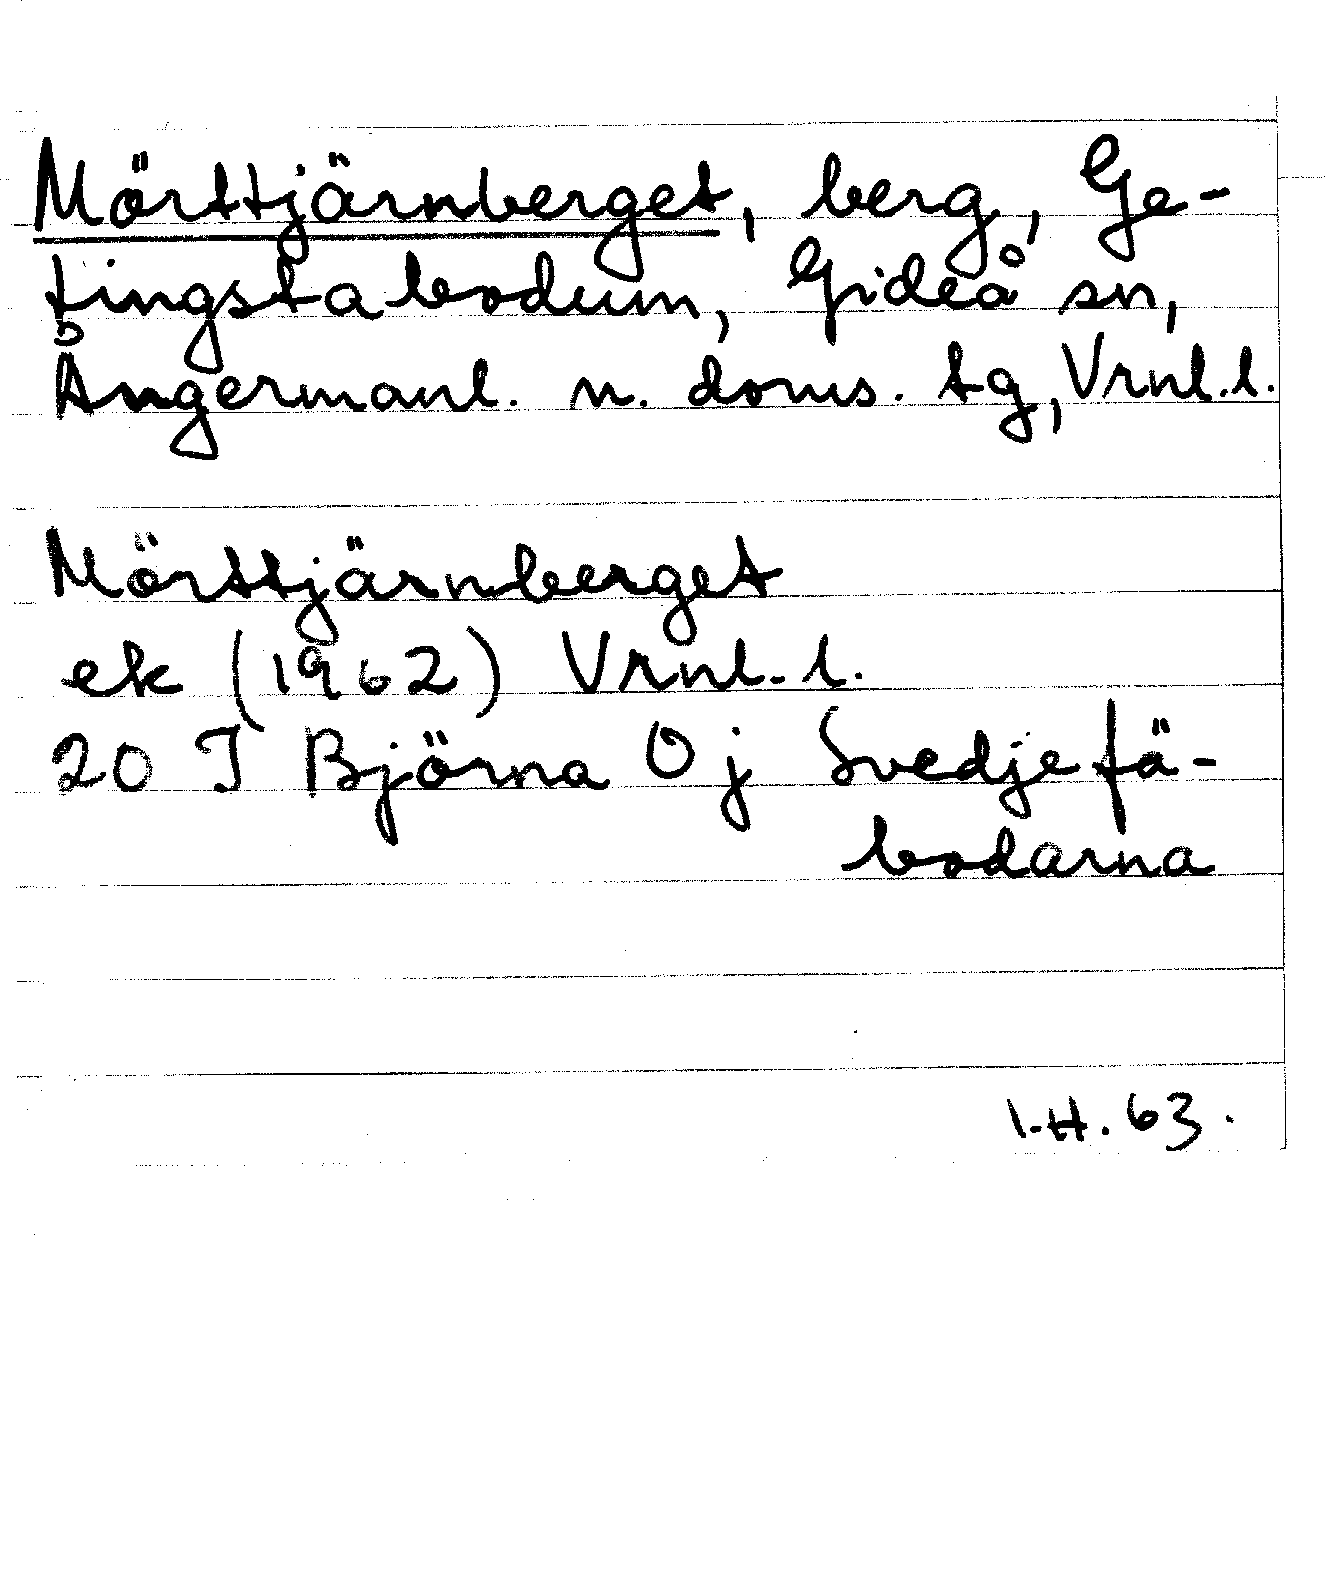 Mörttjärnberget, berg, Ge-
tingstabodum, Gideå sn,
Ångermanl. n. doms. tg, Vrnl.l.
Mörttjärnberget
ek (1962) Vrnl. l.
20 I Björna 0 j Svedjefä-
bodarna
I.H. 63.